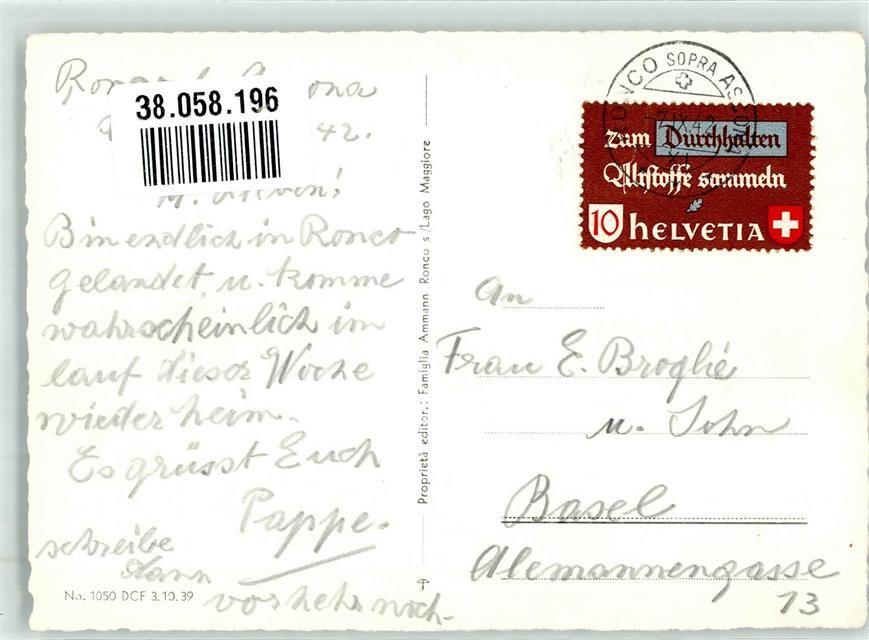 38.058.196
42.
M. Lieben!
Bin endlich in Ronco
gelandet, u. komme
wahrscheinlich im
lauf dieser Woche
wieder heim.
Es grüsst Euch
Pappe.
schreibe
dann
vorher noch.
No. 1050 DCF 3.10.39
Proprietà editor.: Famiglia Ammann Ronco s/Lago Maggiore
RONCO SOPRA ASCONA
IX.42
zum Durchhalten
Altstoffe sammeln
10 HELVETIA
An
Frau E. Broglié
u. Sohn
Basel
Alemannengasse
13